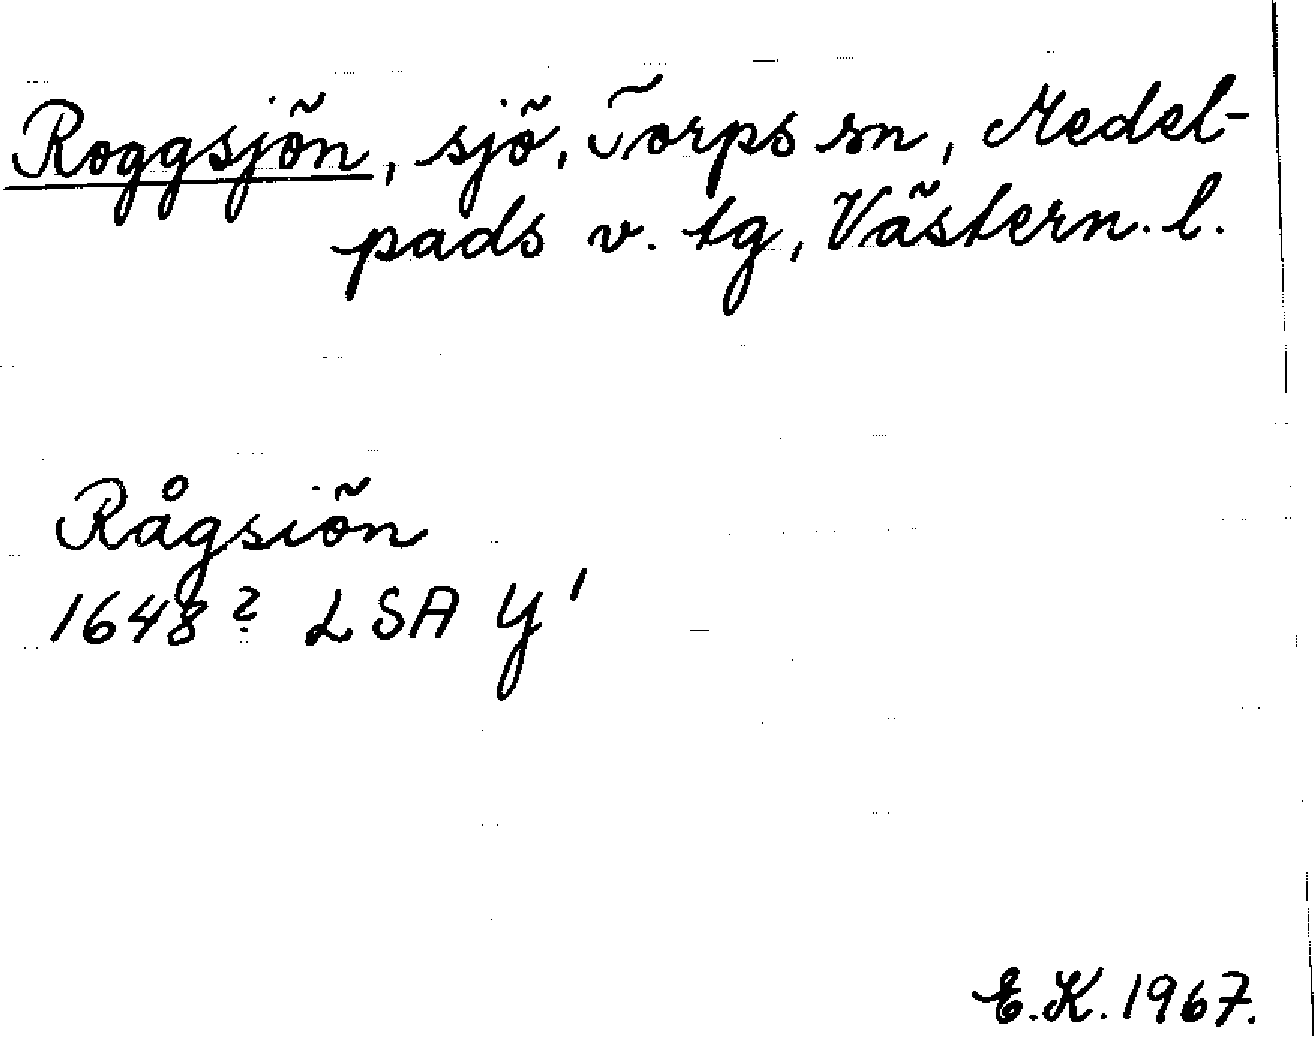 Roggsjön, sjö, Torps sn, Medel-
pads v. tg, Västern. l.
Rågsiön
1648? LSA Y'
E.K. 1967.